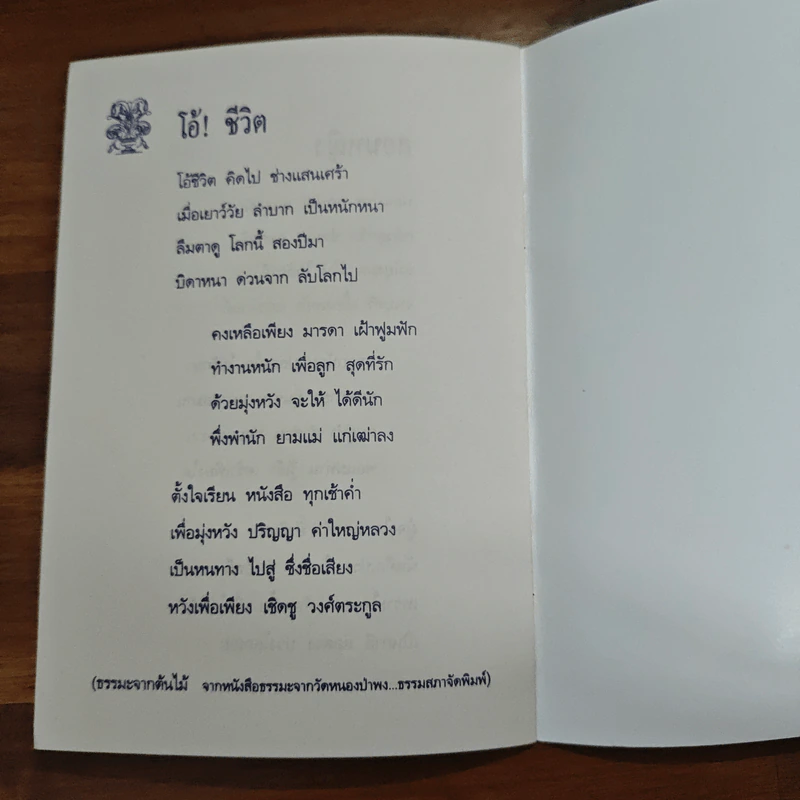 โอ้! ชีวิต
โอ้ชีวิต คิดไป ช่างแสนเศร้า
เมื่อเยาว์วัย ลำบาก เป็นหนักหนา
ลืมตาดู โลกนี้ สองปีมา
บิดาหนา ด่วนจาก ลับโลกไป
คงเหลือเพียง มารดา เฝ้าฟูมฟัก
ทำงานหนัก เพื่อลูก สุดที่รัก
ด้วยมุ่งหวัง จะให้ ได้ดีนัก
พึ่งพำนัก ยามแม่ แก่เฒ่าลง
ตั้งใจเรียน หนังสือ ทุกเช้าค่ำ
เพื่อมุ่งหวัง ปริญญา ค่าใหญ่หลวง
เป็นหนทาง ไปสู่ ซึ่งชื่อเสียง
หวังเพื่อเพียง เชิดชู วงศ์ตระกูล
(ธรรมะจากต้นไม้ จากหนังสือธรรมะจากวัดหนองป่าพง...ธรรมสภาจัดพิมพ์)